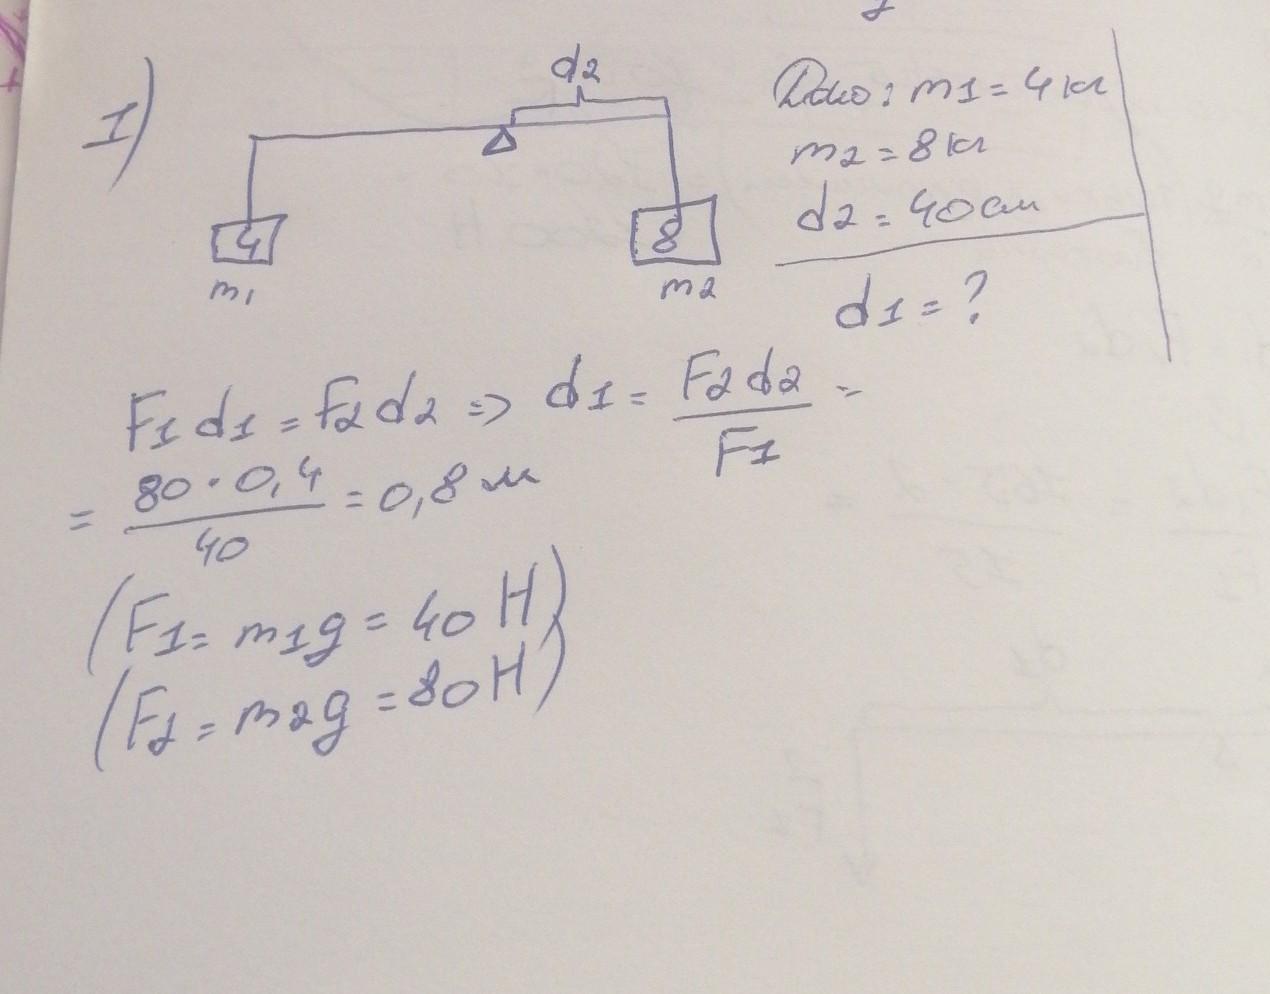 1)
d2
4
m1
8
m2
Дано: m1 = 4 кг
m2 = 8 кг
d2 = 40 см
d1 = ?
F1 d1 = F2 d2 => d1 = F2 d2 / F1 =
= 80 · 0,4 / 40 = 0,8 м
(F1 = m1g = 40 Н)
(F2 = m2g = 80 Н)